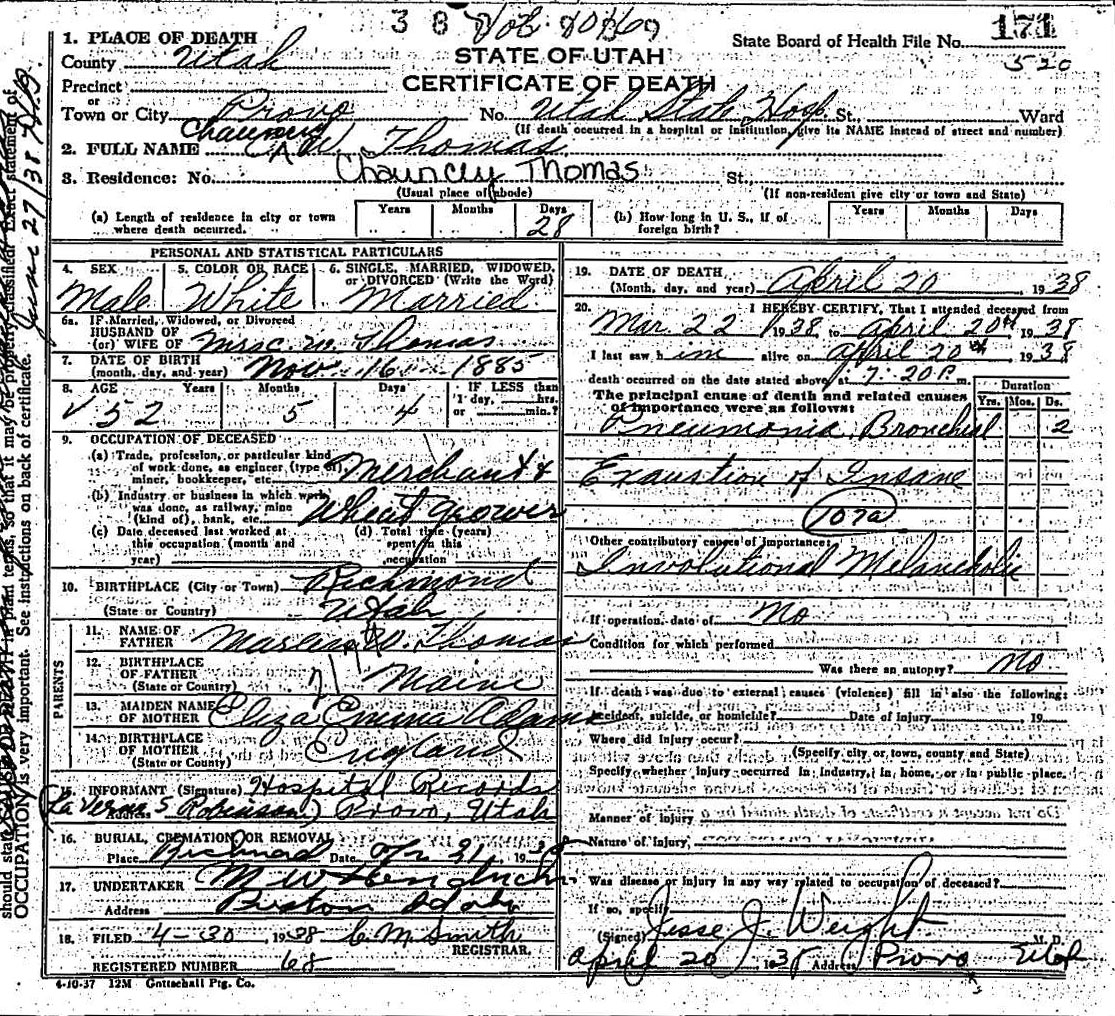 3 8
171
520
State Board of Health File No.
STATE OF UTAH
CERTIFICATE OF DEATH
1. PLACE OF DEATH
County Utah
Precinct
or
Town or City Provo No. Utah State Hosp. St., Ward
(If death occurred in a hospital or institution, give its NAME instead of street and number)
Chauncy
2. FULL NAME C. W. Thomas
Chauncy Thomas
3. Residence: No. St.
(Usual place of abode) (If non-resident give city or town and State)
(a) Length of residence in city or town where death occurred. Years Months Days 28
(b) How long in U. S., if of foreign birth? Years Months Days
PERSONAL AND STATISTICAL PARTICULARS
4. SEX Male
5. COLOR OR RACE White
6. SINGLE, MARRIED, WIDOWED, or DIVORCED (Write the Word) Married
6a. IF Married, Widowed, or Divorced
HUSBAND OF
(or) WIFE OF Mrs C. W. Thomas
7. DATE OF BIRTH
(month, day, and year) Nov 16 1885
8. AGE Years 52 Months 5 Days 4 IF LESS than 1 day, hrs. or min.?
9. OCCUPATION OF DECEASED
(a) Trade, profession, or particular kind of work done, as engineer (type of) miner, bookkeeper, etc. Merchant &
(b) Industry or business in which work was done, as railway, mine (kind of), bank, etc. Wheat grower
(c) Date deceased last worked at this occupation (month and year)
(d) Total time (years) spent in this occupation
10. BIRTHPLACE (City or Town) Richmond
(State or Country) Utah
PARENTS
11. NAME OF FATHER W. Thomas
12. BIRTHPLACE OF FATHER
(State or Country) Maine
13. MAIDEN NAME OF MOTHER Eliza Emma Adams
14. BIRTHPLACE OF MOTHER
(State or Country) England
15. INFORMANT (Signature) Hospital Records
(La Verne S. Robinson) Address Provo, Utah
16. BURIAL, CREMATION OR REMOVAL
Place Richmond Date 21, 1938
17. UNDERTAKER M W Hendricks
Address Preston Idaho
18. FILED 4-30, 1938 C. M Smith
REGISTRAR.
REGISTERED NUMBER 68
4-10-37 12M Gottschall Ptg. Co.
19. DATE OF DEATH
(Month, day, and year) April 20 1938
20. I HEREBY CERTIFY, That I attended deceased from
Mar 22 1938 to April 20th 1938
I last saw him alive on April 20th 1938
death occurred on the date stated above at 7:20 P. m.
Duration
Yrs. Mos. Ds.
The principal cause of death and related causes of importance were as follows:
Pneumonia, Bronchial 2
Exaustion of Insane
107a
Other contributory causes of importance:
Involutional Melancholic
If operation, date of No
Condition for which performed
Was there an autopsy? No
If death was due to external causes (violence) fill in also the following:
Accident, suicide, or homicide? Date of injury 19
Where did injury occur?
(Specify city or town, county and State)
Specify whether injury occurred in industry, in home, or in public place.
Manner of injury
Nature of injury
Was disease or injury in any way related to occupation of deceased?
If so, specify
(Signed) Jesse J. Weight M. D.
April 20 1938 Address Provo Utah
June 27/38
OCCUPATION is very important. See instructions on back of certificate.